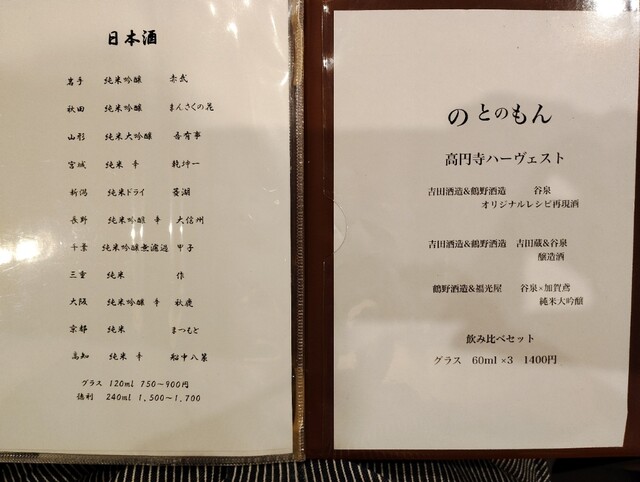 日本酒
岩手 純米吟醸 赤武
秋田 純米吟醸 まんさくの花
山形 純米大吟醸 呑有事
宮城 純米 辛 乾坤一
新潟 純米ドライ 菱湖
長野 純米吟醸 辛 大信州
千葉 純米吟醸無濾過 甲子
三重 純米 作
大阪 純米吟醸 辛 秋鹿
京都 純米 まつもと
高知 純米 辛 船中八策
グラス 120ml 750〜900円
徳利 240ml 1,500〜1,700
のとのもん
高円寺ハーヴェスト
吉田酒造&鶴野酒造 谷泉
オリジナルレシピ再現酒
吉田酒造&鶴野酒造 吉田蔵&谷泉
醸造酒
鶴野酒造&福光屋 谷泉×加賀鳶
純米大吟醸
飲み比べセット
グラス 60ml×3 1400円